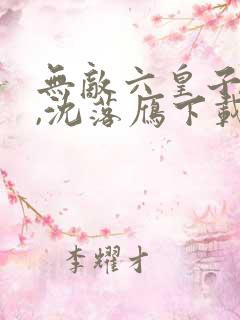 無敵六皇子
,沈落雁下載
李耀才